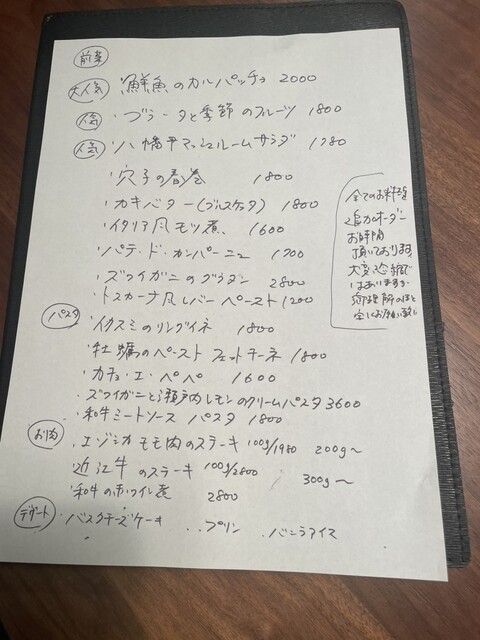 前菜
大人気 ・鮮魚のカルパッチョ 2000
人気 ・ブラータと季節のフルーツ 1800
人気 ・八幡平マッシュルームサラダ 1780
・穴子の春巻 1800
・カキバター(ブルスケッタ) 1800
・イタリア風モツ煮 1600
・パテ・ド・カンパーニュ 1700
・ズワイガニのグラタン 2800
トスカーナ風レバーペースト 1200
パスタ ・イカスミのリングイネ 1800
・牡蠣のペースト フェットチーネ 1800
・カチョ・エ・ペペ 1600
・ズワイガニと瀬戸内レモンのクリームパスタ 3600
・和牛ミートソース パスタ 1800
お肉 ・エゾシカモモ肉のステーキ 100g/1980 200g〜
・近江牛のステーキ 100g/2800 300g〜
・和牛の赤ワイン煮 2800
デザート ・バスクチーズケーキ ・プリン ・バニラアイス
全てのお料理
追加オーダー
お時間
頂いております。
大変恐縮で
はありますが
御理解のほど
宜しくお願い致し